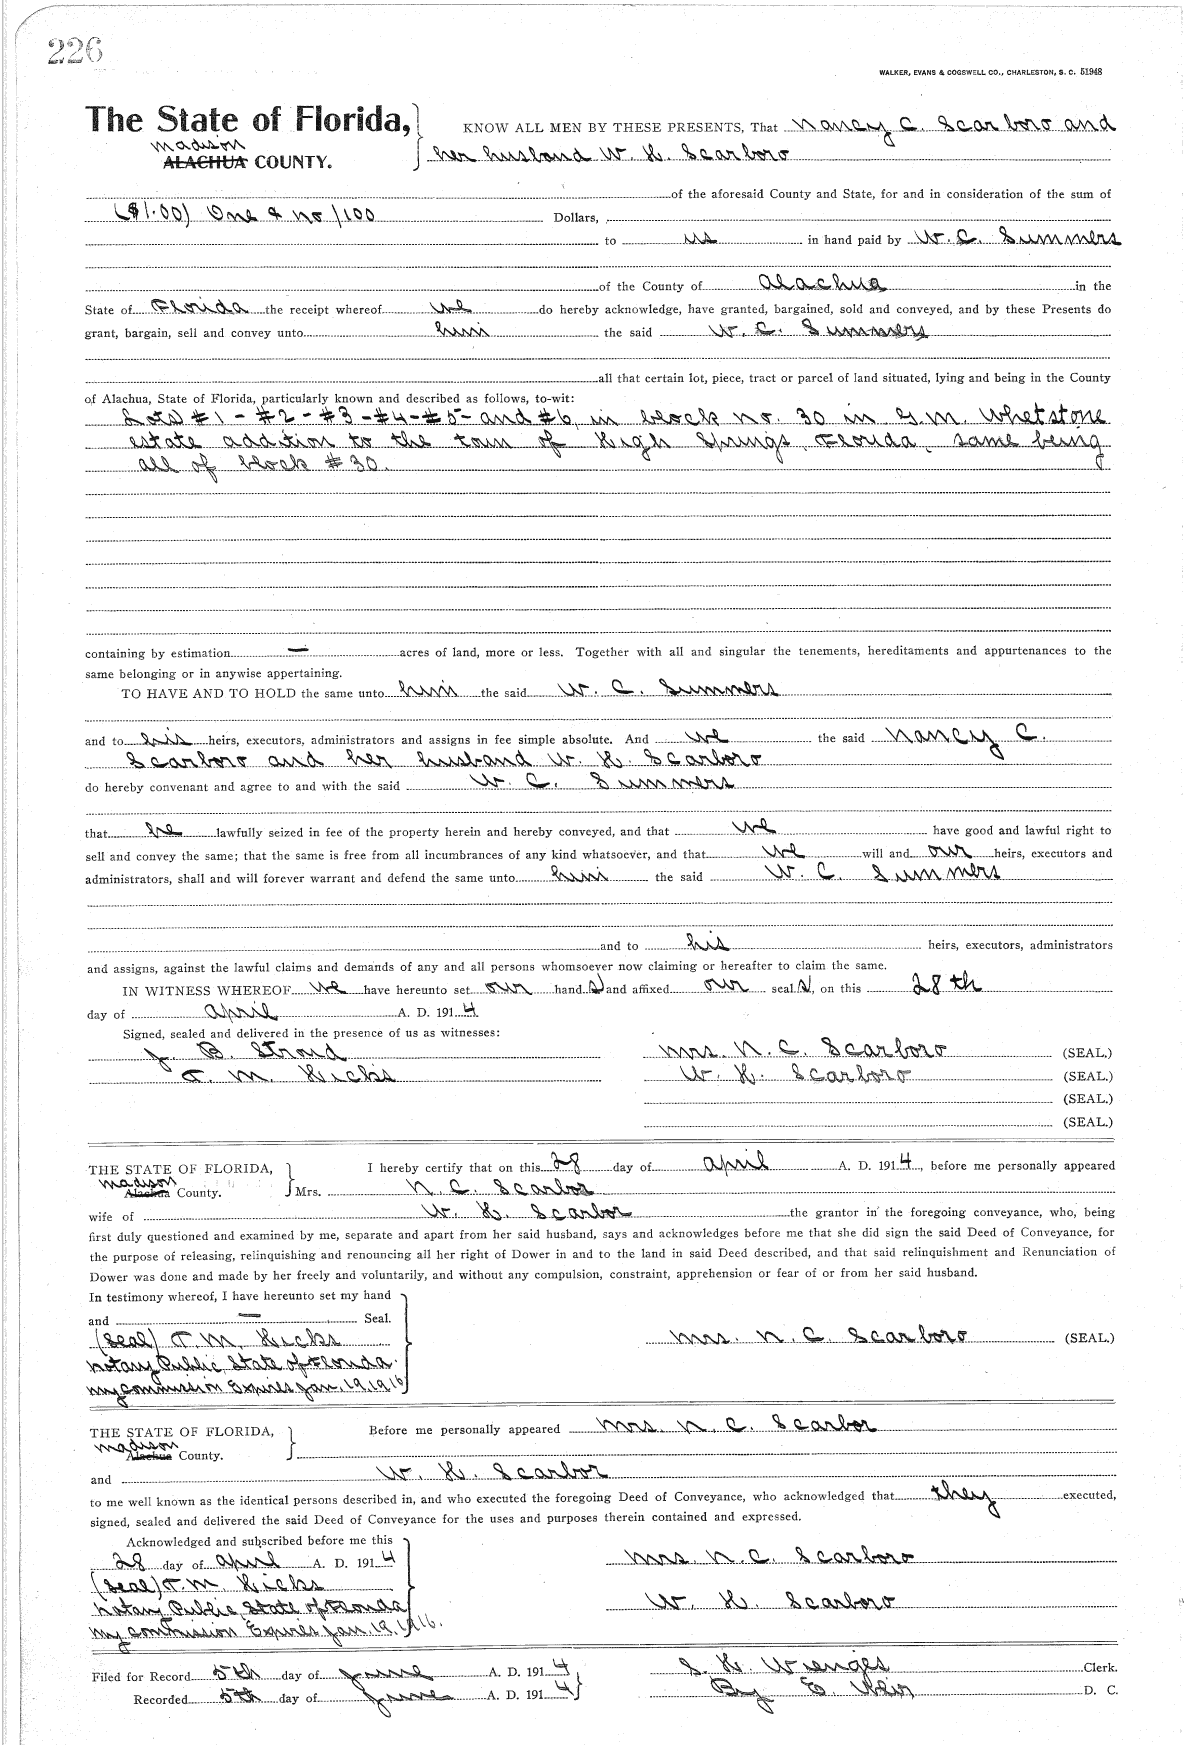 226
WALKER, EVANS & COGSWELL CO., CHARLESTON, S. C. 51948
The State of Florida,
Madison
ALACHUA COUNTY.
KNOW ALL MEN BY THESE PRESENTS, That Nancy C. Scarboro and
her husband W. H. Scarboro
of the aforesaid County and State, for and in consideration of the sum of
($1.00) One & no/100 Dollars,
to us in hand paid by W. C. Summers
of the County of Alachua in the
State of Florida the receipt whereof we do hereby acknowledge, have granted, bargained, sold and conveyed, and by these Presents do
grant, bargain, sell and convey unto him the said W. C. Summers
all that certain lot, piece, tract or parcel of land situated, lying and being in the County
of Alachua, State of Florida, particularly known and described as follows, to-wit:
Lots #1 - #2 - #3 - #4 - #5 - and #6, in block no. 30 in G.M. Whetstone
estate addtion to the town of High Springs, Florida, same being
all of block #30.
containing by estimation — acres of land, more or less. Together with all and singular the tenements, hereditaments and appurtenances to the
same belonging or in anywise appertaining.
TO HAVE AND TO HOLD the same unto him the said W. C. Summers
and to his heirs, executors, administrators and assigns in fee simple absolute. And we the said Nancy C.
Scarboro and her husband W. H. Scarboro
do hereby convenant and agree to and with the said W. C. Summers
that he lawfully seized in fee of the property herein and hereby conveyed, and that we have good and lawful right to
sell and convey the same; that the same is free from all incumbrances of any kind whatsoever, and that we will and our heirs, executors and
administrators, shall and will forever warrant and defend the same unto him the said W. C. Summers
and to his heirs, executors, administrators
and assigns, against the lawful claims and demands of any and all persons whomsoever now claiming or hereafter to claim the same.
IN WITNESS WHEREOF we have hereunto set our hand s and affixed our seal s, on this 28th
day of April A. D. 1914
Signed, sealed and delivered in the presence of us as witnesses:
J. B. Stroud Mrs. N. C. Scarboro (SEAL.)
T. M. Hicks W. H. Scarboro (SEAL.)
(SEAL.)
(SEAL.)
THE STATE OF FLORIDA, I hereby certify that on this 28 day of April A. D. 1914, before me personally appeared
Madison
Alachua County. Mrs. N. C. Scarbor
wife of W. H. Scarbor the grantor in the foregoing conveyance, who, being
first duly questioned and examined by me, separate and apart from her said husband, says and acknowledges before me that she did sign the said Deed of Conveyance, for
the purpose of releasing, relinquishing and renouncing all her right of Dower in and to the land in said Deed described, and that said relinquishment and Renunciation of
Dower was done and made by her freely and voluntarily, and without any compulsion, constraint, apprehension or fear of or from her said husband.
In testimony whereof, I have hereunto set my hand
and — Seal.
(Seal) T. M. Hicks Mrs. N. C. Scarboro (SEAL.)
Notary Public, State of Florida.
My commission Expires Jan. 19, 1916
THE STATE OF FLORIDA, Before me personally appeared Mrs. N. C. Scarbor
Madison
Alachua County.
and W. H. Scarbor
to me well known as the identical persons described in, and who executed the foregoing Deed of Conveyance, who acknowledged that they executed,
signed, sealed and delivered the said Deed of Conveyance for the uses and purposes therein contained and expressed.
Acknowledged and subscribed before me this
28 day of April A. D. 1914 Mrs N. C. Scarboro
(Seal) T. M. Hicks
Notary Public, State of Florida W. H. Scarboro
My commission Expires Jan. 19, 1916.
Filed for Record 5th day of June A. D. 1914 S. H. Wienges Clerk.
Recorded 5th day of June A. D. 1914 By E. D. C.